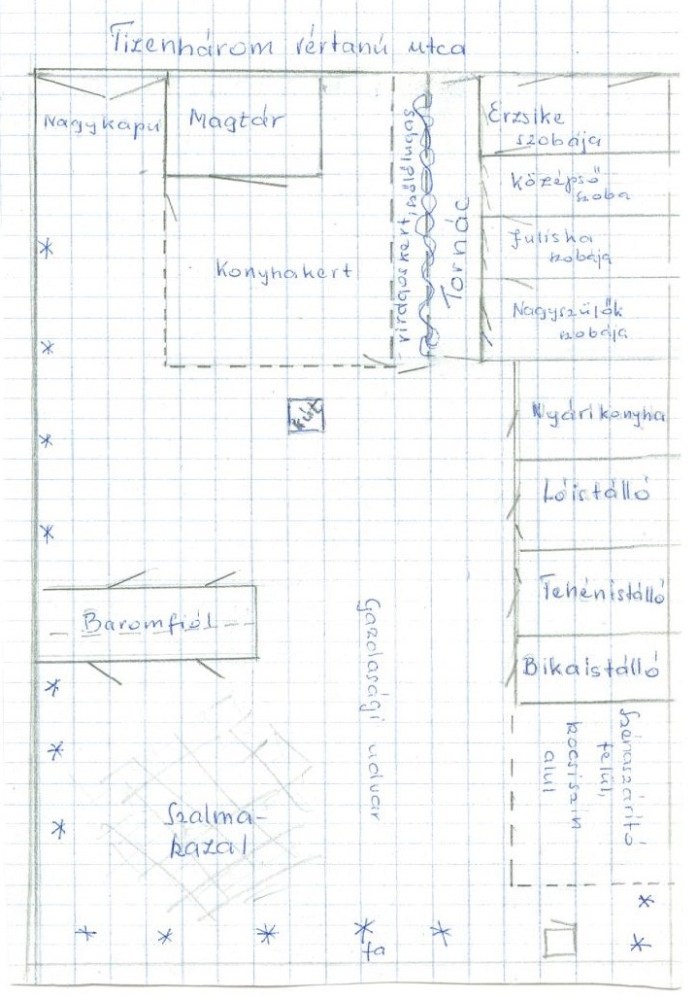 Tizenhárom vértanú utca
Nagykapu
Magtár
Konyhakert
virágoskert, szőlőlugas
Tornác
Erzsike
szobája
Középső
szoba
Juliska
szobája
Nagyszülők
szobája
Kút
Nyárikonyha
Lóistálló
Tehénistálló
Bikaistálló
Baromfiól
Gazdasági udvar
Szénaszárító
felül,
kocsiszín
alul
Szalma-
kazal
fa